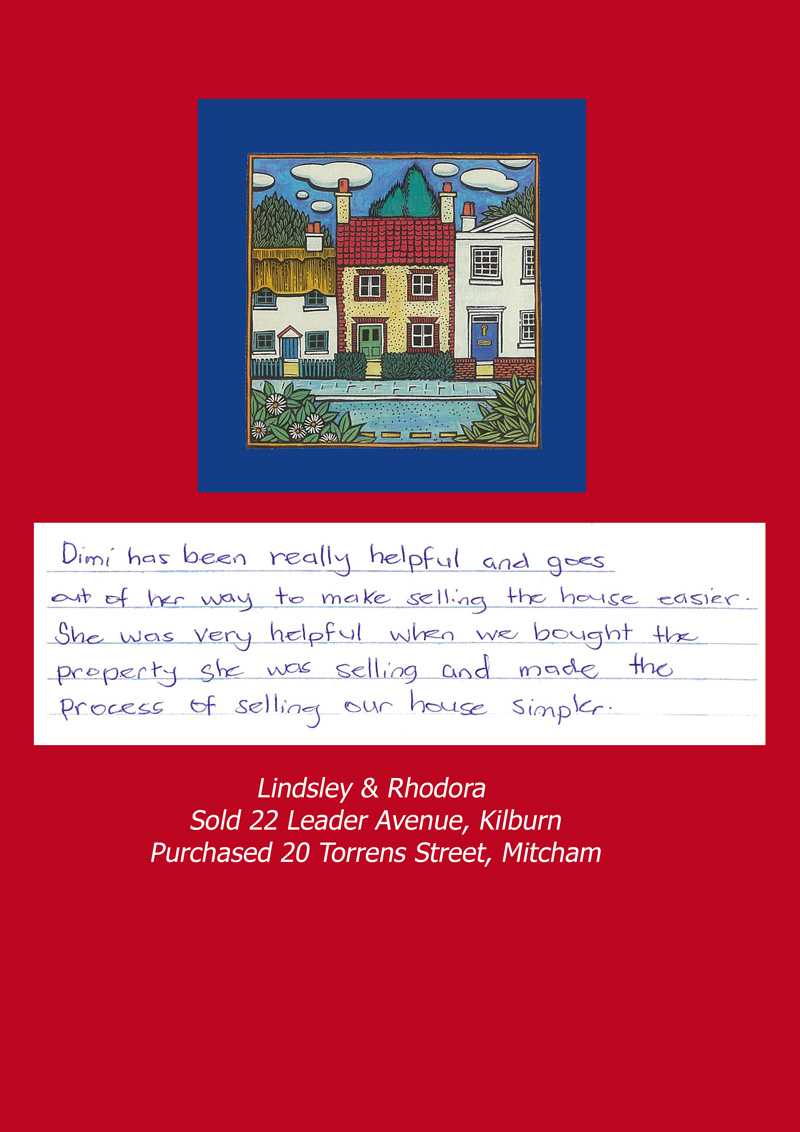 Dimi has been really helpful and goes
out of her way to make selling the house easier.
She was very helpful when we bought the
property she was selling and made the
process of selling our house simpler.
Lindsley & Rhodora
Sold 22 Leader Avenue, Kilburn
Purchased 20 Torrens Street, Mitcham